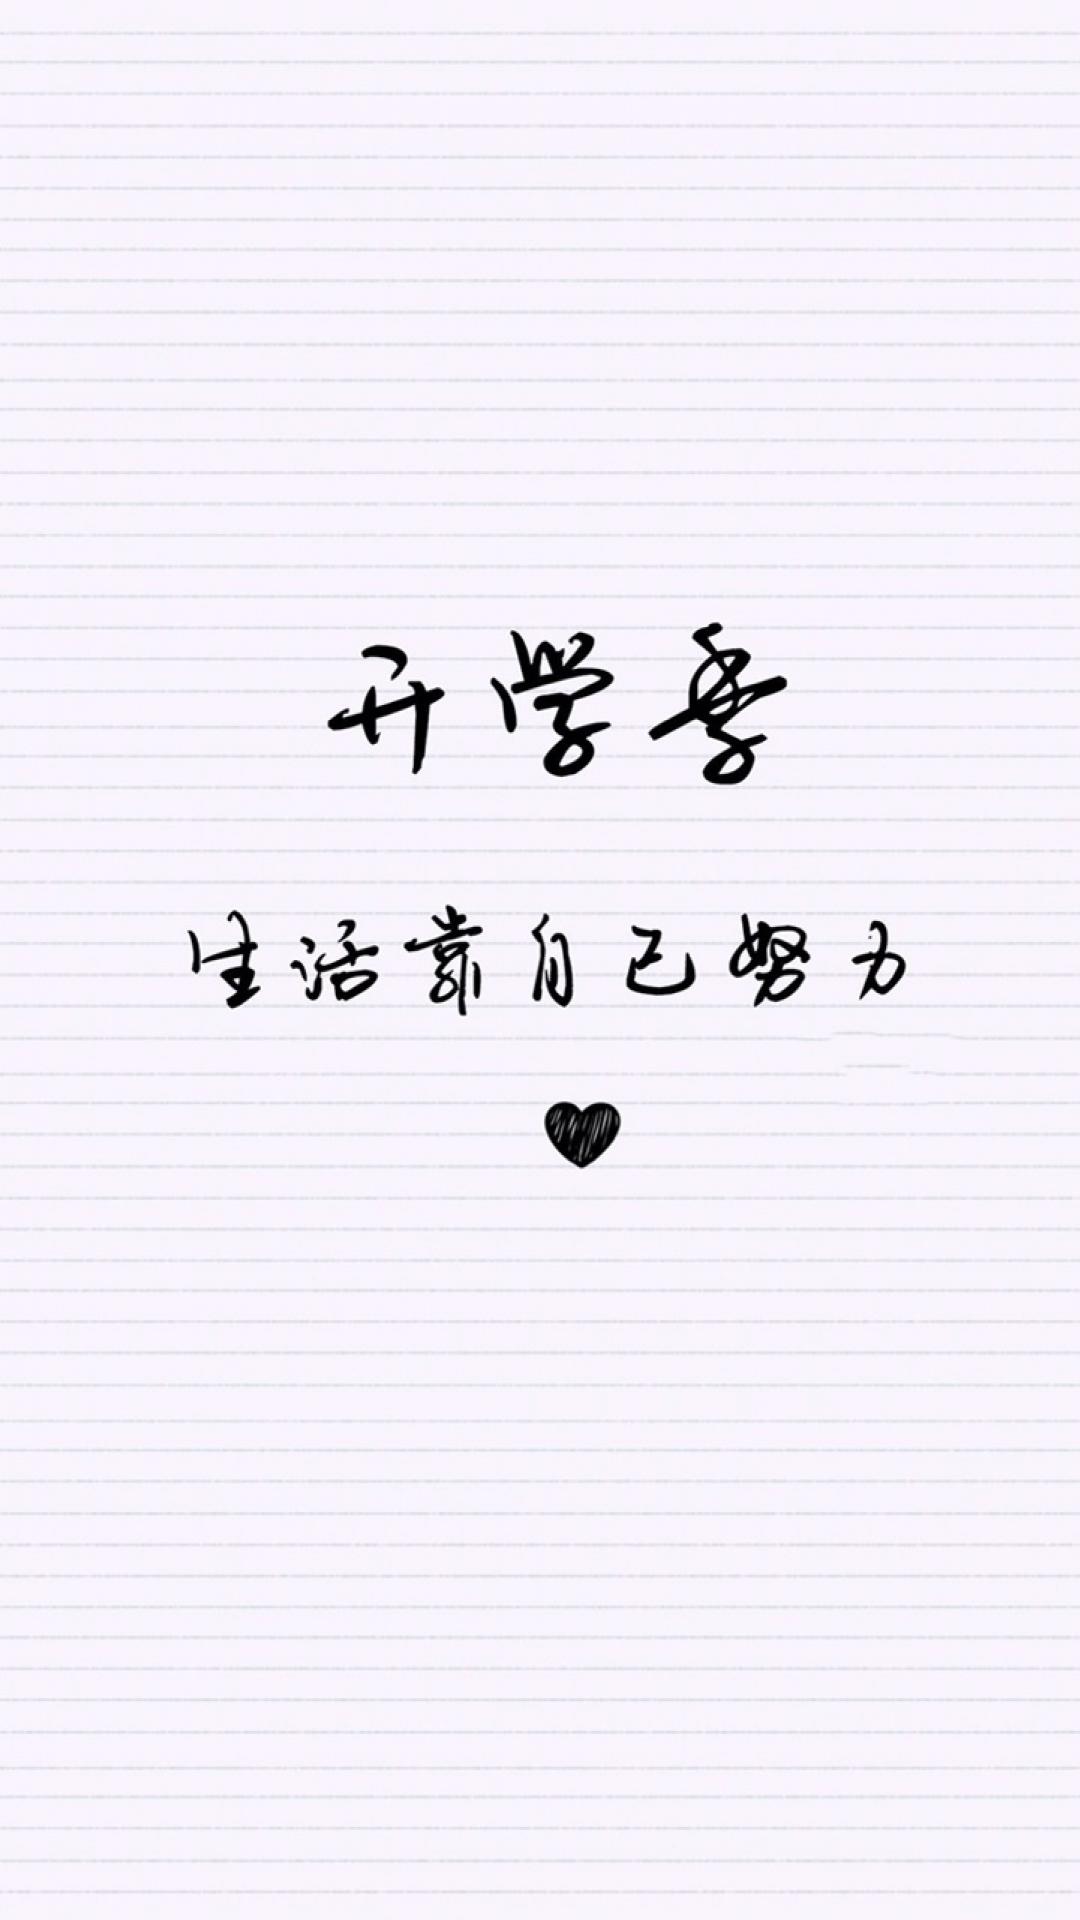 开学季
生活靠自己努力